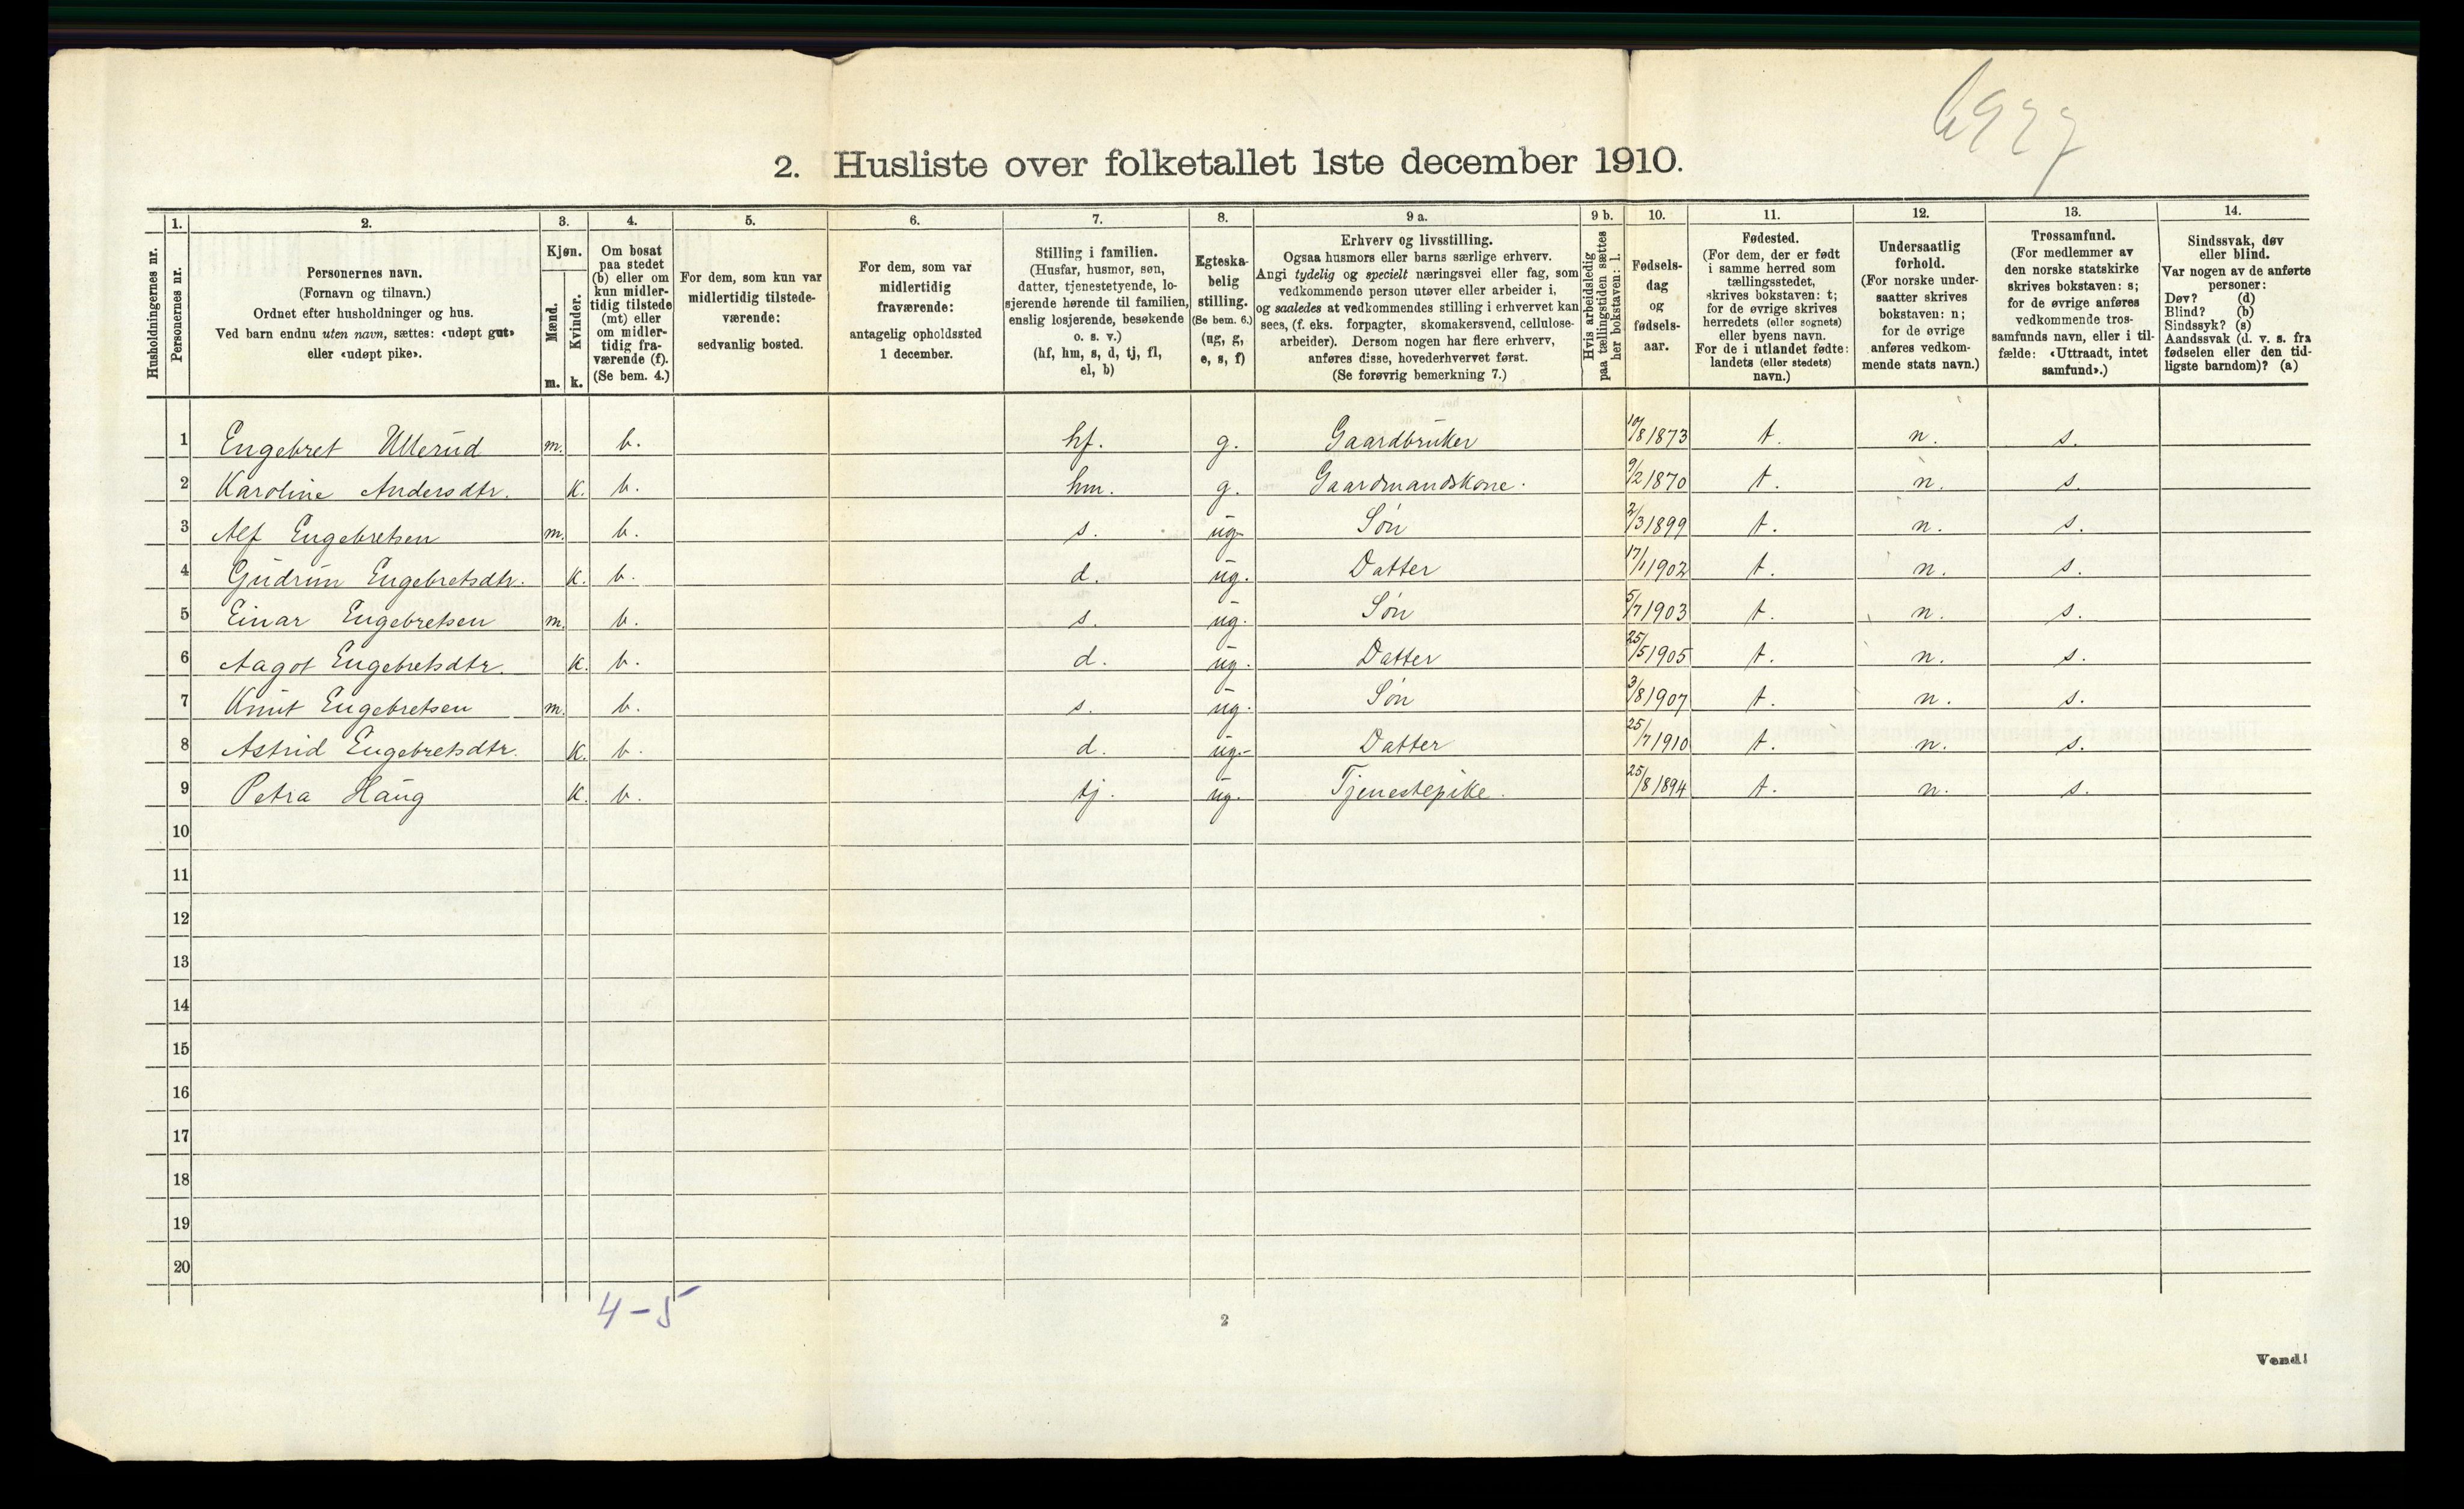 6927
2. Husliste over folketallet 1ste december 1910.
Husholdningernes nr.
1. Personernes nr.
2. Personernes navn. (Fornavn og tilnavn.) Ordnet efter husholdninger og hus. Ved barn endnu uten navn, sættes: «udøpt gut» eller «udøpt pike».
3. Kjøn. Mænd. m. Kvinder. k.
4. Om bosat paa stedet (b) eller om kun midlertidig tilstede (mt) eller om midlertidig fraværende (f). (Se bem. 4.)
5. For dem, som kun var midlertidig tilstedeværende: sedvanlig bosted.
6. For dem, som var midlertidig fraværende: antagelig opholdssted 1 december.
7. Stilling i familien. (Husfar, husmor, søn, datter, tjenestetyende, losjerende hørende til familien, enslig losjerende, besøkende o. s. v.) (hf, hm, s, d, tj, fl, el, b)
8. Egteskabelig stilling. (Se bem. 6.) (ug, g, e, s, f)
9 a. Erhverv og livsstilling. Ogsaa husmors eller barns særlige erhverv. Angi tydelig og specielt næringsvei eller fag, som vedkommende person utøver eller arbeider i, og saaledes at vedkommendes stilling i erhvervet kan sees, (f. eks. forpagter, skomakersvend, cellulosearbeider). Dersom nogen har flere erhverv, anføres disse, hovederhvervet først. (Se forøvrig bemerkning 7.)
9 b. Hvis arbeidsledig paa tællingstiden sættes her bokstaven: l.
10. Fødselsdag og fødselsaar.
11. Fødested. (For dem, der er født i samme herred som tællingsstedet, skrives bokstaven: t; for de øvrige skrives herredets (eller sognets) eller byens navn. For de i utlandet fødte: landets (eller stedets) navn.)
12. Undersaatlig forhold. (For norske undersaatter skrives bokstaven: n; for de øvrige anføres vedkommende stats navn.)
13. Trossamfund. (For medlemmer av den norske statskirke skrives bokstaven: s; for de øvrige anføres vedkommende trossamfunds navn, eller i tilfælde: «Uttraadt, intet samfund».)
14. Sindssvak, døv eller blind. Var nogen av de anførte personer: Døv? (d) Blind? (b) Sindssyk? (s) Aandssvak (d. v. s. fra fødselen eller den tidligste barndom)? (a)
1 Engebret Ullerud m. b. hf. g. Gaardbruker 10/8 1873 t. n. s.
2 Karoline Andersdtr. k. b. hm. g. Gaardmandskone. 9/2 1870 t. n. s.
3 Alf Engebretsen m. b. s. ug. Søn 2/3 1899 t. n. s.
4 Gudrun Engebretsdtr. k. b. d. ug. Datter 17/1 1902 t. n. s.
5 Einar Engebretsen m. b. s. ug. Søn 5/7 1903 t. n. s.
6 Aagot Engebretsdtr. k. b. d. ug. Datter 25/5 1905 t. n. s.
7 Knut Engebretsen m. b. s. ug. Søn 3/8 1907 t. n. s.
8 Astrid Engebretsdtr. k. b. d. ug. Datter 25/7 1910 t. n. s.
9 Petra Haug k. b. tj. ug. Tjenestepike. 25/8 1894 t. n. s.
10
11
12
13
14
15
16
17
18
19
20
4-5
2
Vend!